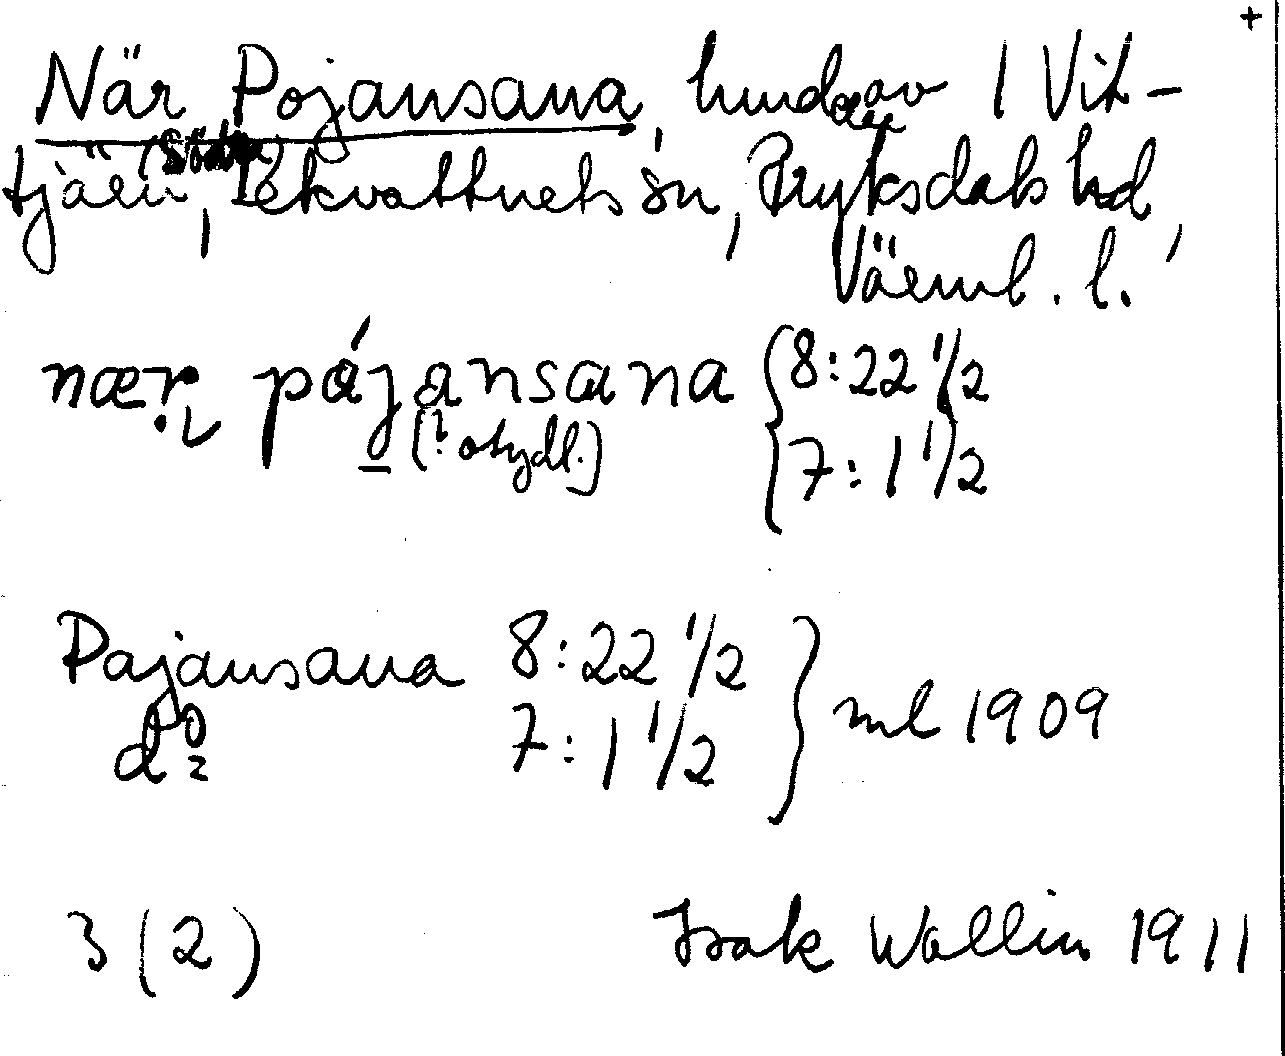 +
När Pojansana, hmdäg av 1 Vit-
tjärn, (Södra) Lekvattnets sn, Fryksdals hd,
Värml. l.
nær pájansana { 8:22 1/2
(? otydl.) 7:1 1/2
Pajansana 8:22 1/2
d:o 7:1 1/2 } ml 1909
3 (2) Isak Wallin 1911